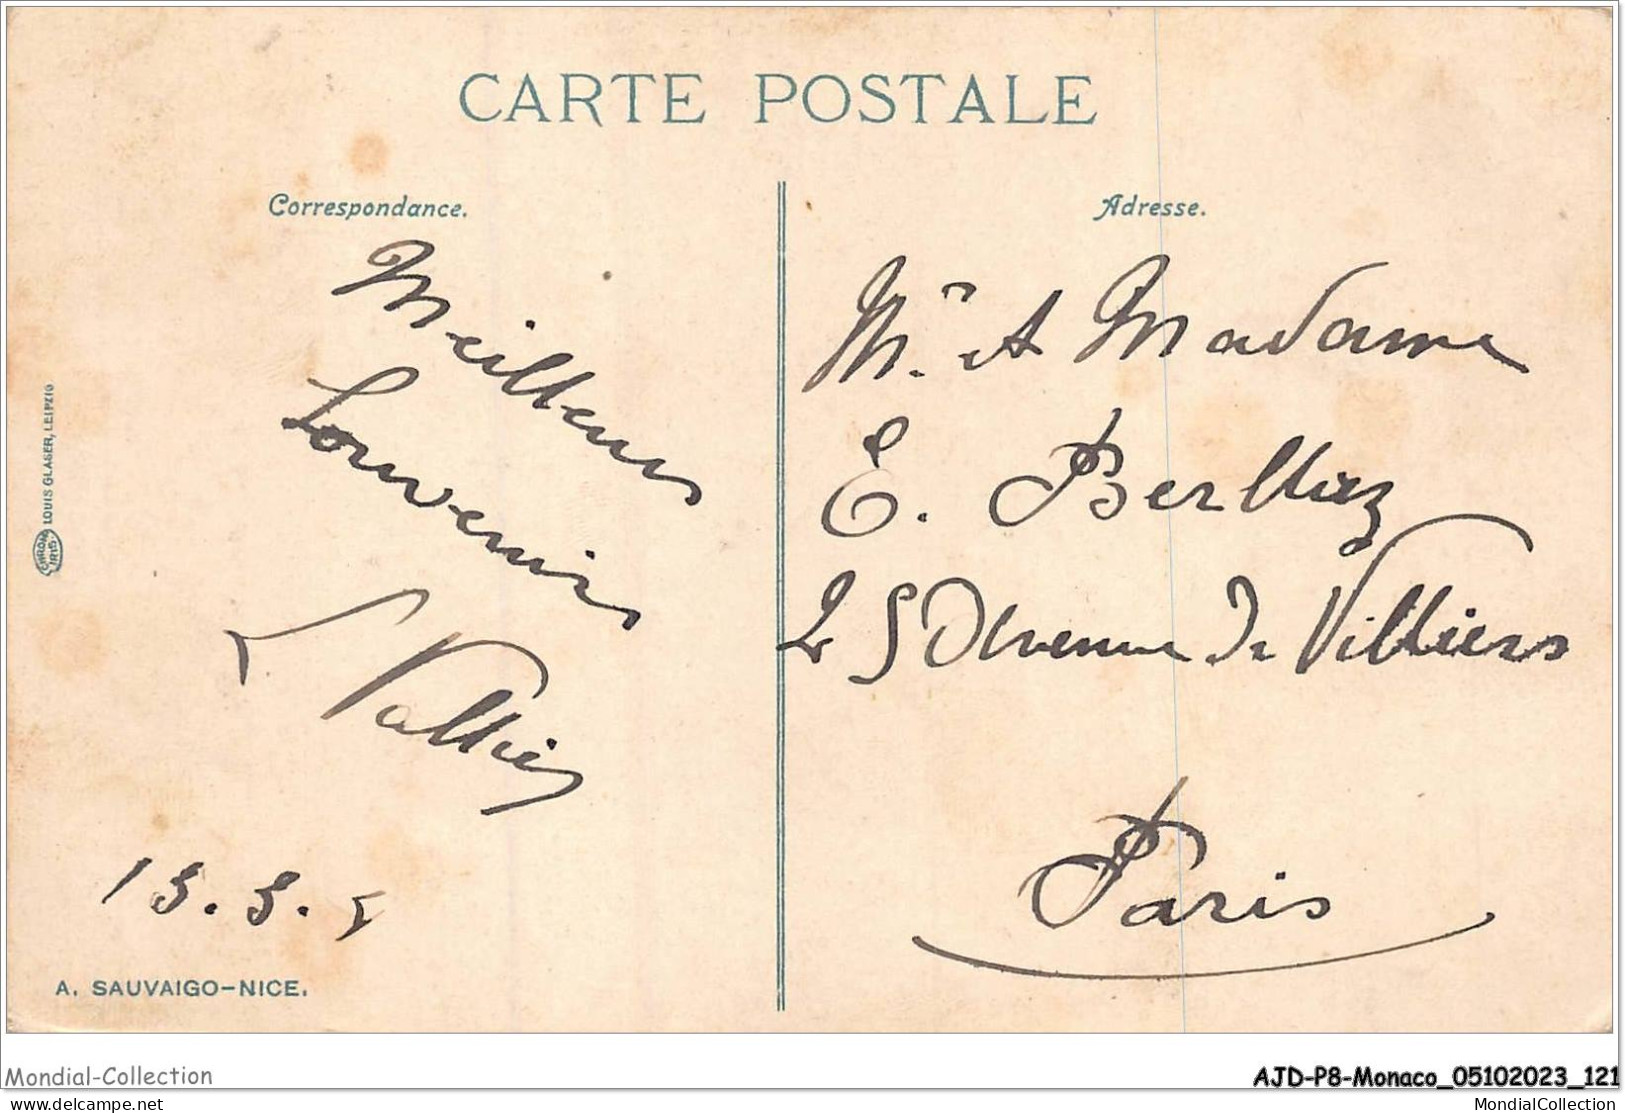 CARTE POSTALE
Correspondance.
Adresse.
Meilleurs
Souvenirs
L Vallier
13.3.5
Mr. et Madame
E.
25 Avenue de Villiers
Paris
LOUIS GLASER, LEIPZIG
CHROMO
IRIS
A. SAUVAIGO-NICE.
Mondial-Collection
AJD-P8-Monaco_05102023_121
www.delcampe.net
MondialCollection